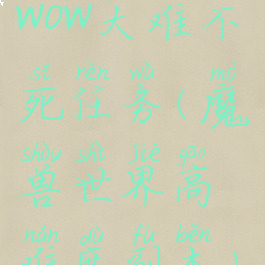 WOW大难不
sǐ rèn wù mó
死任务(魔
shòu shì jiè gāo
兽世界高
nán dù fù běn
难度副本)